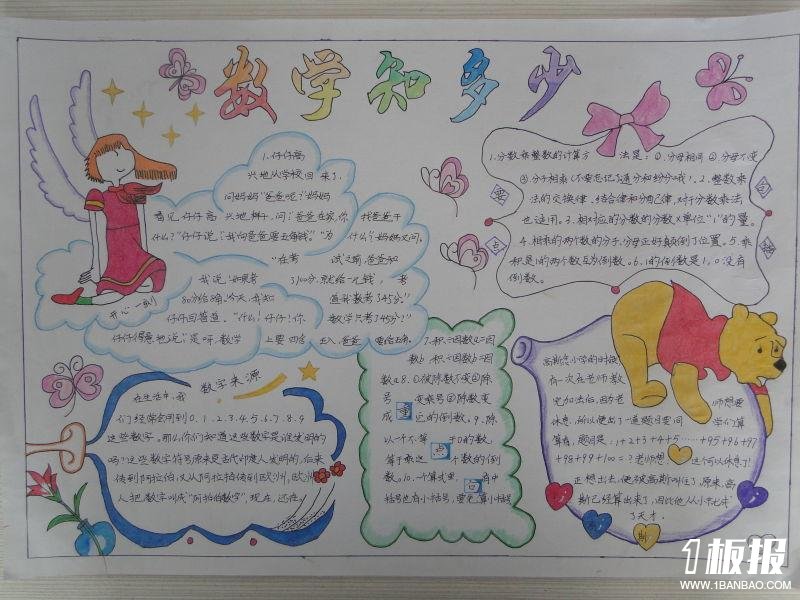 数学知多少
1.仔仔高
兴地从学校回来了,
问妈妈"爸爸呢?"妈妈
看见仔仔高兴地样,问:"爸爸在家,你找爸爸干
什么?"仔仔说:"我向爸爸要五角钱。""为什么?"妈妈又问。
"在考试之前,爸爸和
我说,如果考了100分,就给一元钱,考
80分给啥今天,我知道我数考了45分!"
开心一刻
仔仔回答道,"什么!仔仔!你数学只考了45分?"
仔仔得意地说"是呀,数学上要四舍五入,爸爸
1.分数乘整数的计算方法是:①.分母相同②.分母不变
③.分子相乘(不要忘记了通分和约分哦!)2.整数乘
法的交换律、结合律和分配律,对于分数乘法
也适用。3.相对应的分数的分数×单位"1"的量。
4.相乘的两个数的分子、分母正好颠倒了位置。5.乘
积是1的两个数互为倒数。6.1的倒数是1。0没有
倒数。
数字来源
在生活中,我
们经常会用到0.1.2.3.4.5.6.7.8.9
这些数字。那么你们知道这些数字是谁发明的
吗?这些数字符号原来是古代印度人发明的,后来
传到阿拉伯,又从阿拉伯传到欧洲,欧洲
人把数字叫成"阿拉伯数字",现在,还在
7.积÷因数a=因
数b 积÷因数b=因
数a 8.①被除数不变②除
号变乘号③除数变
成它的倒数。9.除
以一个不等于0的数,
等于乘这个数的倒
数。10.一个算式里,有中
括号也有小括号,要先算小括
重
点
高斯念小学的时候,
有一次在老师教
完加法后,因为老师想要
休息,所以便出了一道题目要同学们算
算看,题目是:1+2+3+4+5……+95+96+97
+98+99+100=?老师想,这个可以休息了!
正想出去,便被高斯叫住了,原来,高
斯已经算出来了,因此他从小书七就成
了天才。
1板报
WWW.1BANBAO.COM